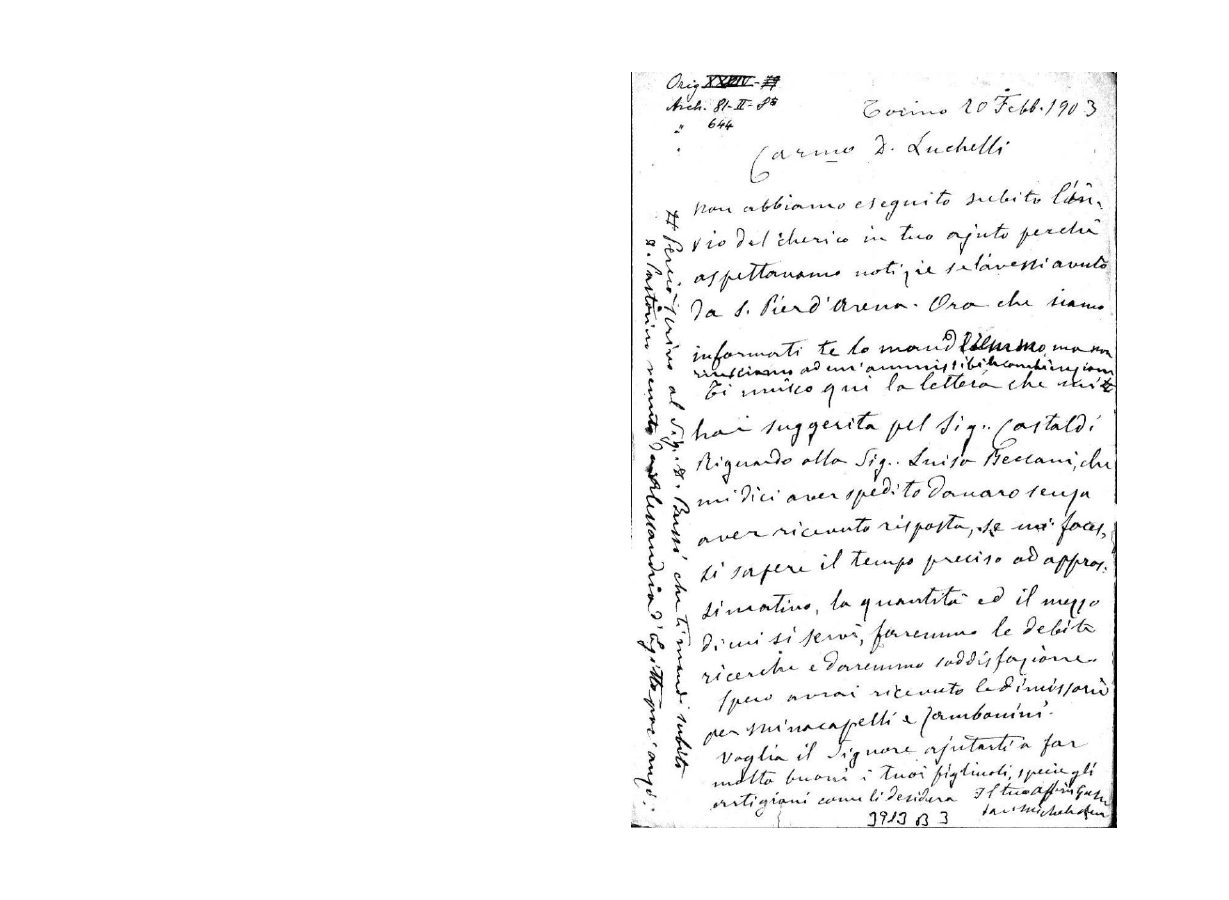 Orig XXXIV-
Arch. 81-II-8
" 644
Torino 20 Febb. 1903
Carmo D. Luchelli
non abbiamo eseguito subito l'in-
vio del cherico in tuo ajuto perchè
aspettavamo notizie se l'avessi avuto
da S. Pier d'Arena. Ora che siamo
informati te lo mand ma non
riusciamo ad un'ammissibile combinazione
Ti unisco qui la lettera che
hai suggerita pel Sig. Castaldi
Riguardo alla Sig. Luisa che
mi dici aver spedito danaro senza
aver ricevuto risposta, se mi faces,
si sapere il tempo preciso od appros:
simativo, la quantità ed il mezzo
di cui si servì, farremmo le debite
ricerche e darremmo soddisfazione.
Spero avrai ricevuto le dimissorie
per Minacapelli e Zambonini.
Voglia il Signore ajutarti a far
molto buoni i tuoi figliuoli, specie gli
artigiani come li desidera Il tuo
Sac Michele Rua
3913 B 3
# Perciò scrivo al Sig. D. Bussi che ti mandi subito
D. Pastorino venuto da Alessandria d'Egitto